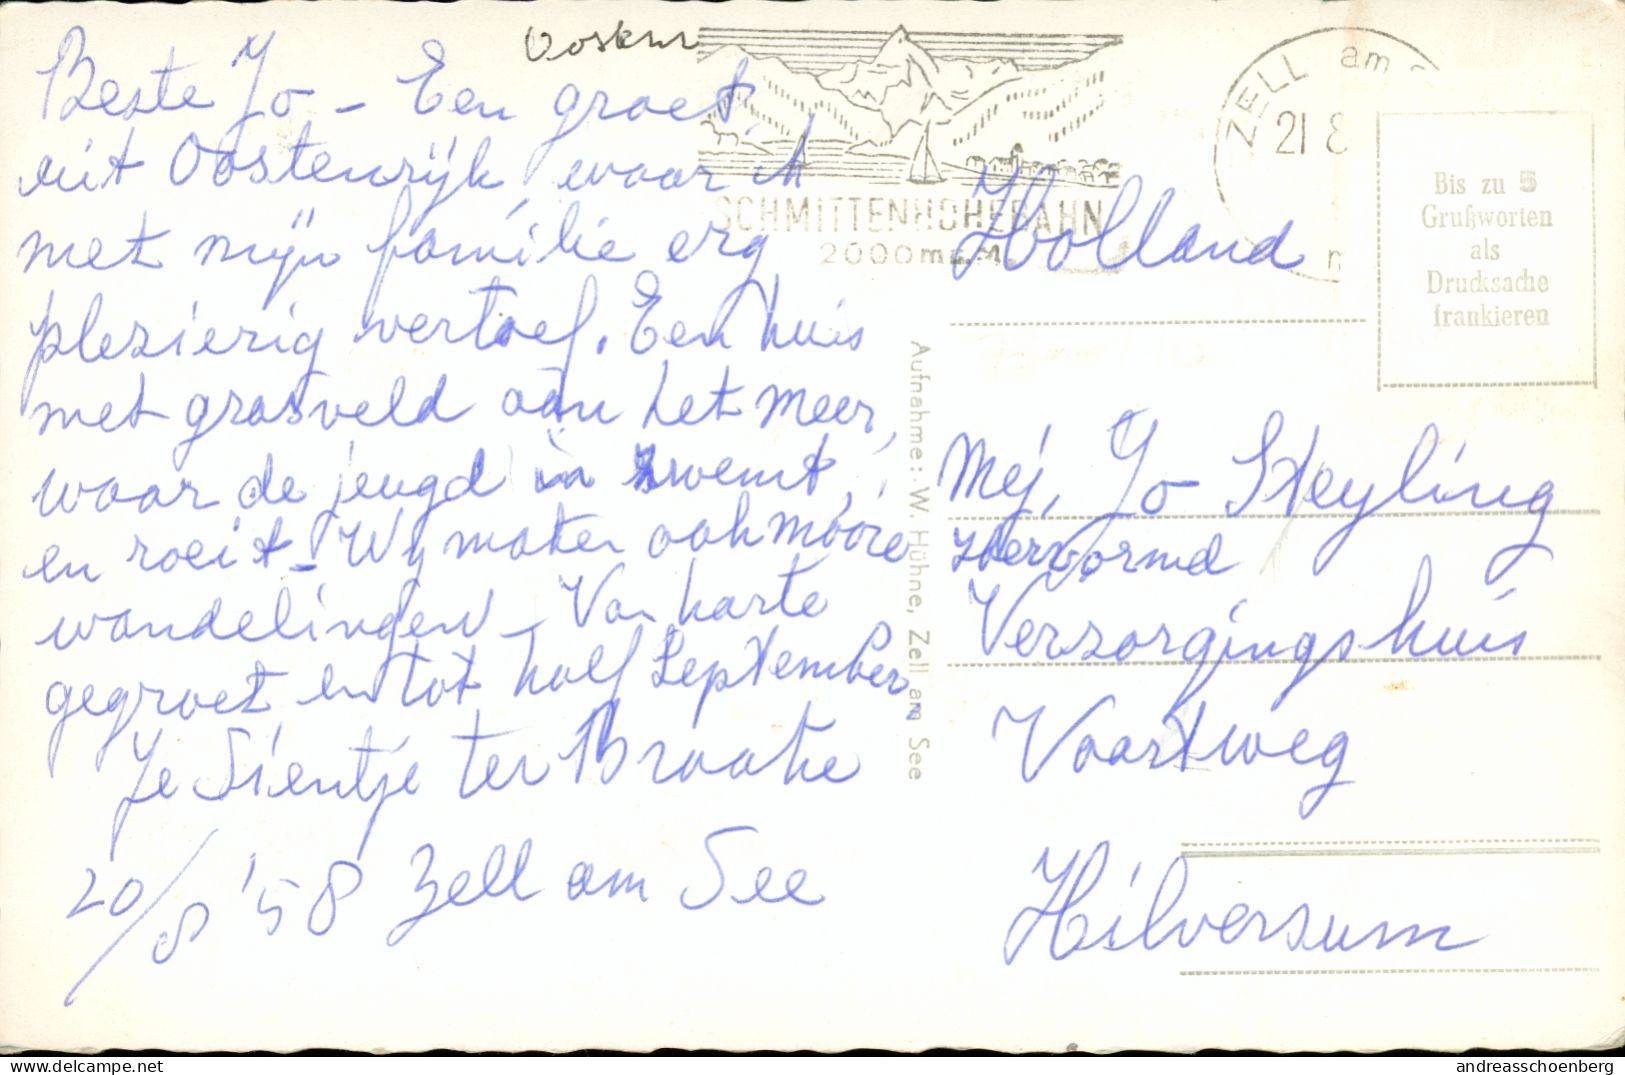 Beste Jo - Een groet
uit Oostenrijk waar ik
met mijn familie erg
plezierig vertoef. Een huis
met grasveld aan het meer,
waar de jeugd in zwemt,
en roeit - Wij maken ook mooie
wandelingen - Van harte
gegroet en tot half September
Je Sientje ter Braake
20/8 '58 Zell am See
SCHMITTENHÖHEBAHN
2000 m ü. M.
ZELL am
21 8
Bis zu 5
Grußworten
als
Drucksache
frankieren
Aufnahme: W. Hühne, Zell am See
Holland
Mej. Jo Steyling
Hervormd
Verzorgingshuis
Vaartweg
Hilversum
andreasschoenberg